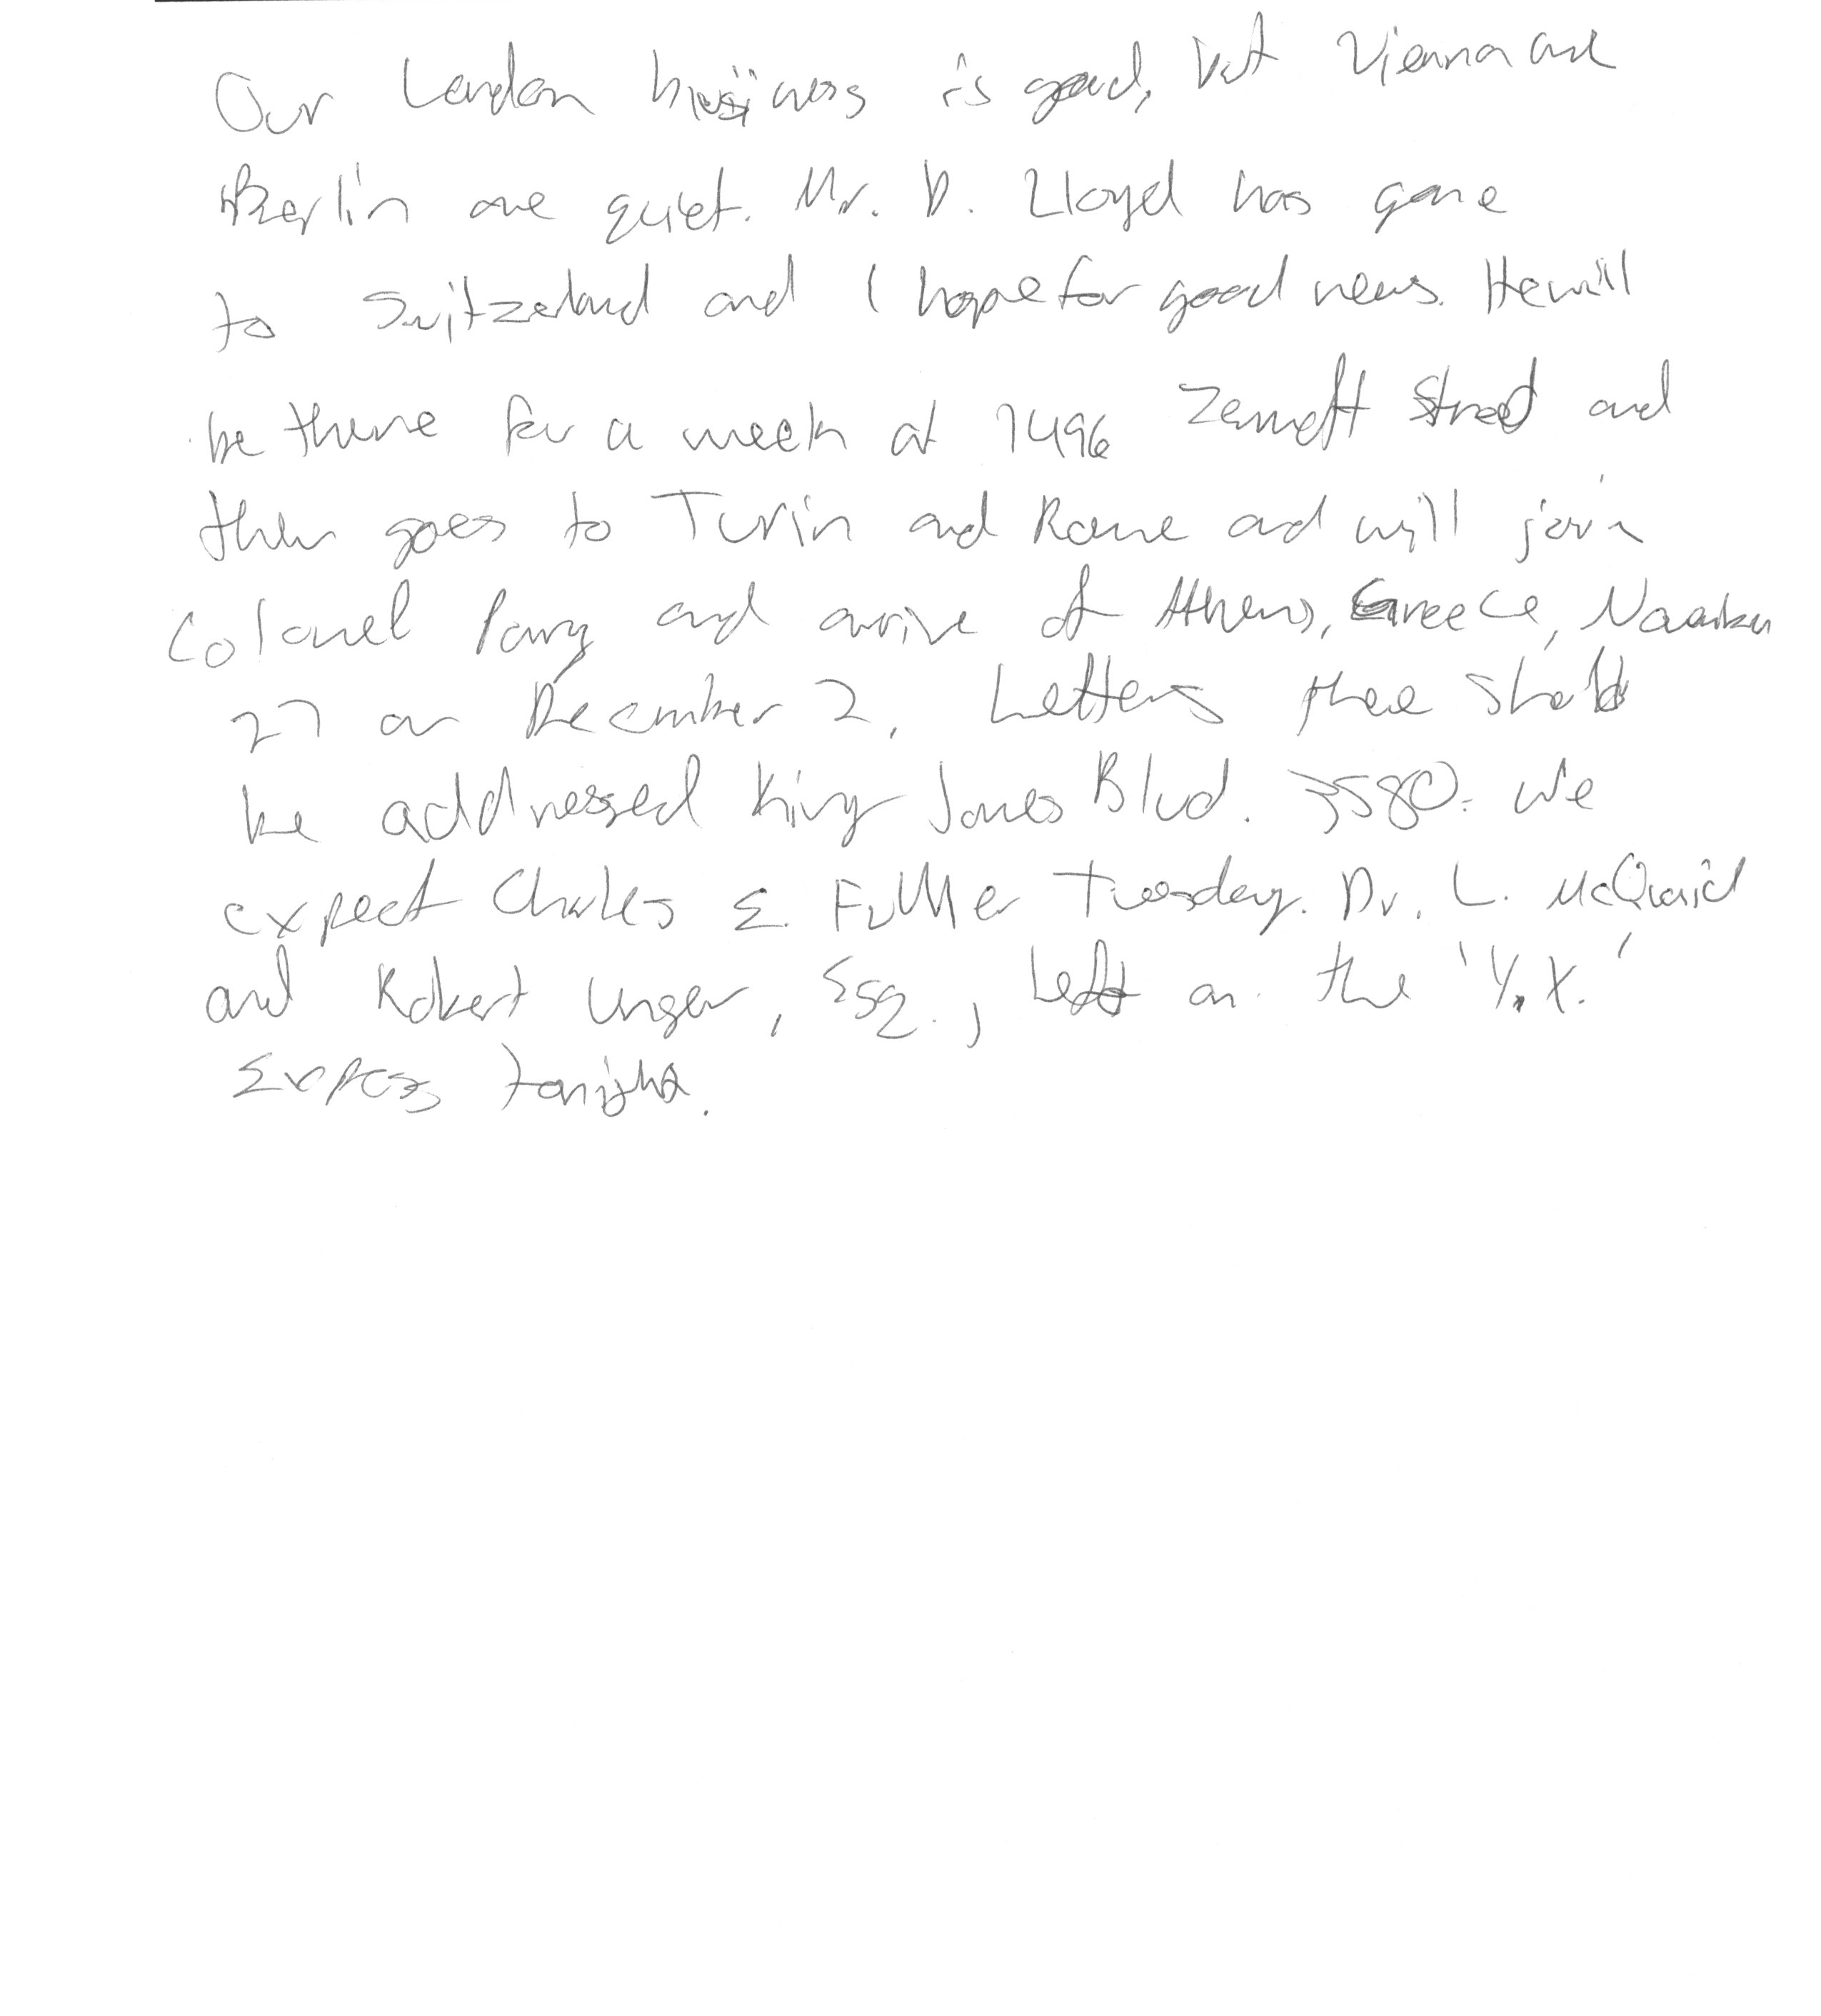 Our London business is good, but Vienna and
Berlin are quiet. Mr. D. Lloyd has gone
to Switzerland and I hope for good news. He will
be there for a week at 1496 Zermott Street and
then goes to Turin and Rome and will join
Colonel Parry and arrive at Athens, Greece, November
27 or December 2. Letters there should
be addressed King James Blvd. 3580. We
expect Charles E. Fuller Tuesday. Dr. L. McQuaid
and Robert Unger, Esq., left on the 'Y.X.'
Express tonight.